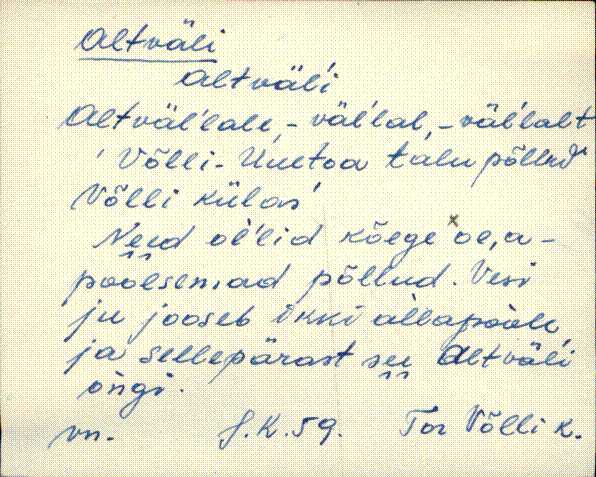 Altväli
Altväl'i
Altväl'lale, -väl'lal, -väl'lalt
'Võlli-Uuetoa talu põllud
Võlli külas'
Need ol'lid kõege
poolsemad põllud. Vesi
ju jooseb ikki allapoole,
ja sellepärast see Altväli
ongi.
vn. J.K.59. Tor Võlli k.